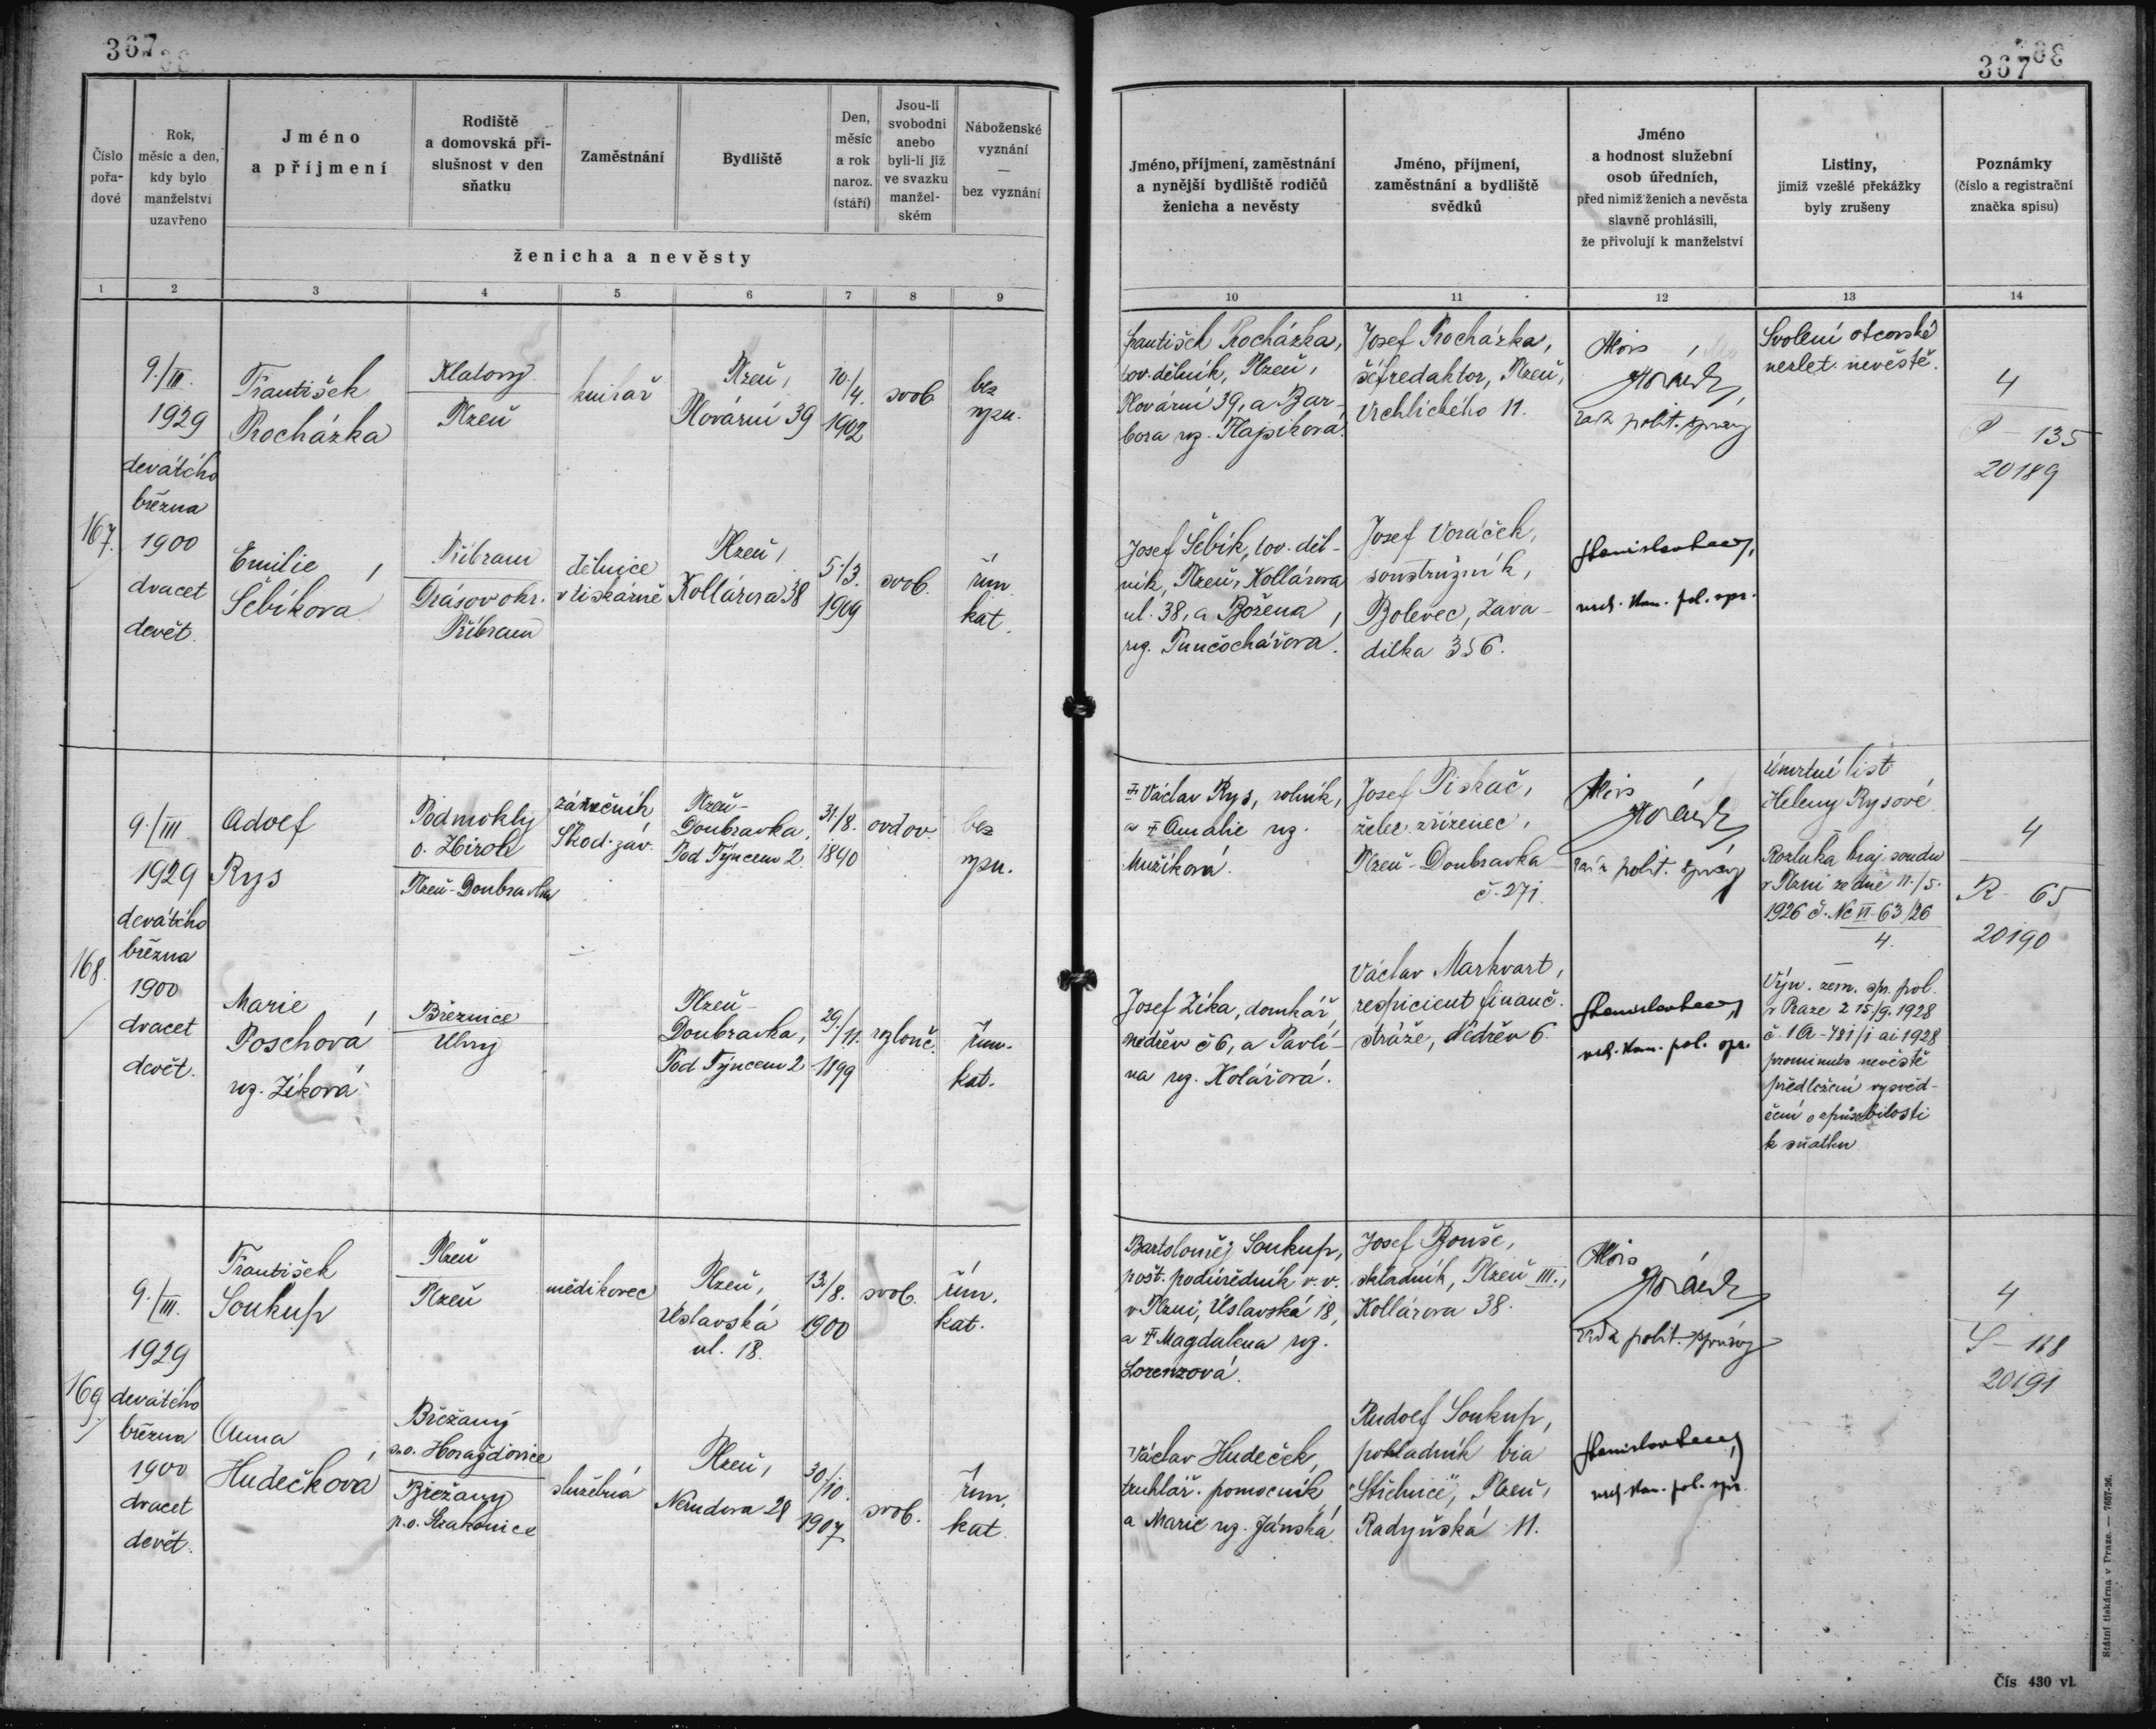 367
367
Číslo
pořa-
dové
Rok,
měsíc a den,
kdy bylo
manželství
uzavřeno
Jméno
a příjmení
Rodiště
a domovská pří-
slušnost v den
sňatku
Zaměstnání
Bydliště
Den,
měsíc
a rok
naroz.
(stáří)
Jsou-li
svobodni
anebo
byli-li již
ve svazku
manžel-
ském
Náboženské
vyznání
—
bez vyznání
ženicha a nevěsty
Jméno, příjmení, zaměstnání
a nynější bydliště rodičů
ženicha a nevěsty
Jméno, příjmení,
zaměstnání a bydliště
svědků
Jméno
a hodnost služební
osob úředních,
před nimiž ženich a nevěsta
slavně prohlásili,
že přivolují k manželství
Listiny,
jimiž vzešlé překážky
byly zrušeny
Poznámky
(číslo a registrační
značka spisu)
1 2 3 4 5 6 7 8 9 10 11 12 13 14
167.
9./III.
1929
devátého
března
1900
dvacet
devět.
František
Procházka
Klatovy
Plzeň
knihař
Plzeň,
Plovární 39
10./4.
1902
svob
bez
vyzn.
František Procházka,
tov. dělník, Plzeň,
Plovární 39, a Bar-
bora roz.
Josef Procházka,
šéfredaktor, Plzeň,
Vrchlického 11.
Alois
Horák,
rada polit. správy
Svolení otcovské
nezlet. nevěstě.
4
P - 135
20189
Emilie
Šebíková
Příbram
Drásov okr.
Příbram
dělnice
v tiskárně
Plzeň,
Kollárova 38
5./3.
1909
svob.
řím.
kat.
Josef Šebík, tov. děl-
ník, Plzeň, Kollárova
ul. 38, a Božena,
roz. Punčochářova.
Josef Voráček,
soustružník,
Bolevec, Zava-
dilka 356.
vrch. kan. pol. spr.
168.
9./III
1929
devátého
března
1900
dvacet
devět.
Adolf
Rys
Podmokly
o. Zbiroh
Plzeň-Doubravka
zámečník
Škod. záv.
Plzeň-
Doubravka,
Pod Týncem 2
31./8.
1890
ovdov.
bez
vyzn.
‡ Václav Rys, rolník,
a ‡ Amalie roz.
Mužíková.
Josef Piskač,
želez. zřízenec,
Plzeň-Doubravka
č. 271.
Alois
Horák
rada polit. správy
Úmrtní list
Heleny Rysové
Rozluka kraj. soudu
v Plzni ze dne 11./5.
1926 č. Nc VI 63/26
4.
4
R - 65
20190
Marie
Poschová
roz. Zíková
Březnice
Plzeň-
Doubravka,
Pod Týncem 2
29./11.
1899
rozlouč.
řím.
kat.
Josef Zíka, domkář,
Nédřev č 6, a Pavlí-
na roz. Kolářová.
Václav Markvart,
respicient finanč.
stráže, Nédřev 6.
vrch. kan. pol. spr.
Výn. zem. spr. pol.
v Praze z 15./9. 1928
č. 1A-781/1 ai 1928
prominuto nevěstě
předložení vysvěd-
čení o způsobilosti
k sňatku
169
9./III.
1929
devátého
března
1900
dvacet
devět.
František
Soukup
Plzeň
Plzeň
mědikovec
Plzeň,
Úslavská
ul. 18.
13./8.
1900
svob.
řím.
kat.
Bartoloměj Soukup,
pošt. podúředník v. v.
v Plzni, Úslavská 18,
a ‡ Magdalena roz.
Lorenzová.
Josef Bouše,
skladník, Plzeň III.,
Kollárova 38.
Alois
Horák
rada polit. správy
4
S - 168
20191
Anna
Hudečková
Břežany
p.o. Horažďovice
Břežany
p.o. Strakonice
služebná
Plzeň,
Nerudova 28
30./10.
1907
svob.
řím.
kat.
Václav Hudeček,
truhlář. pomocník
a Marie roz. Jánská
Rudolf Soukup,
pokladník bia
"Střelnice", Plzeň,
Radyňská 11.
vrch. kan. pol. spr.
Státní tiskárna v Praze. — 7657-26.
Čís 430 vl.